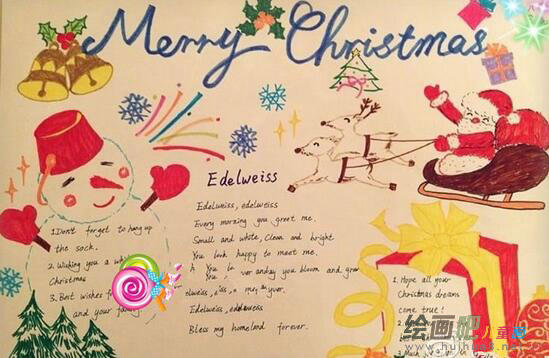 Merry Christmas
Edelweiss
Edelweiss, edelweiss
Every morning you greet me.
Small and white, clean and bright
You look happy to meet me.
you bloom and
Edelweiss, edelweiss
Bless my homeland forever.
1. Don't forget to hang up
the sock.
2. Wishing you a
Christmas
3. Best wishes
and your
1. Hope all your
Christmas dreams
come true!
2.
绘画吧
儿童